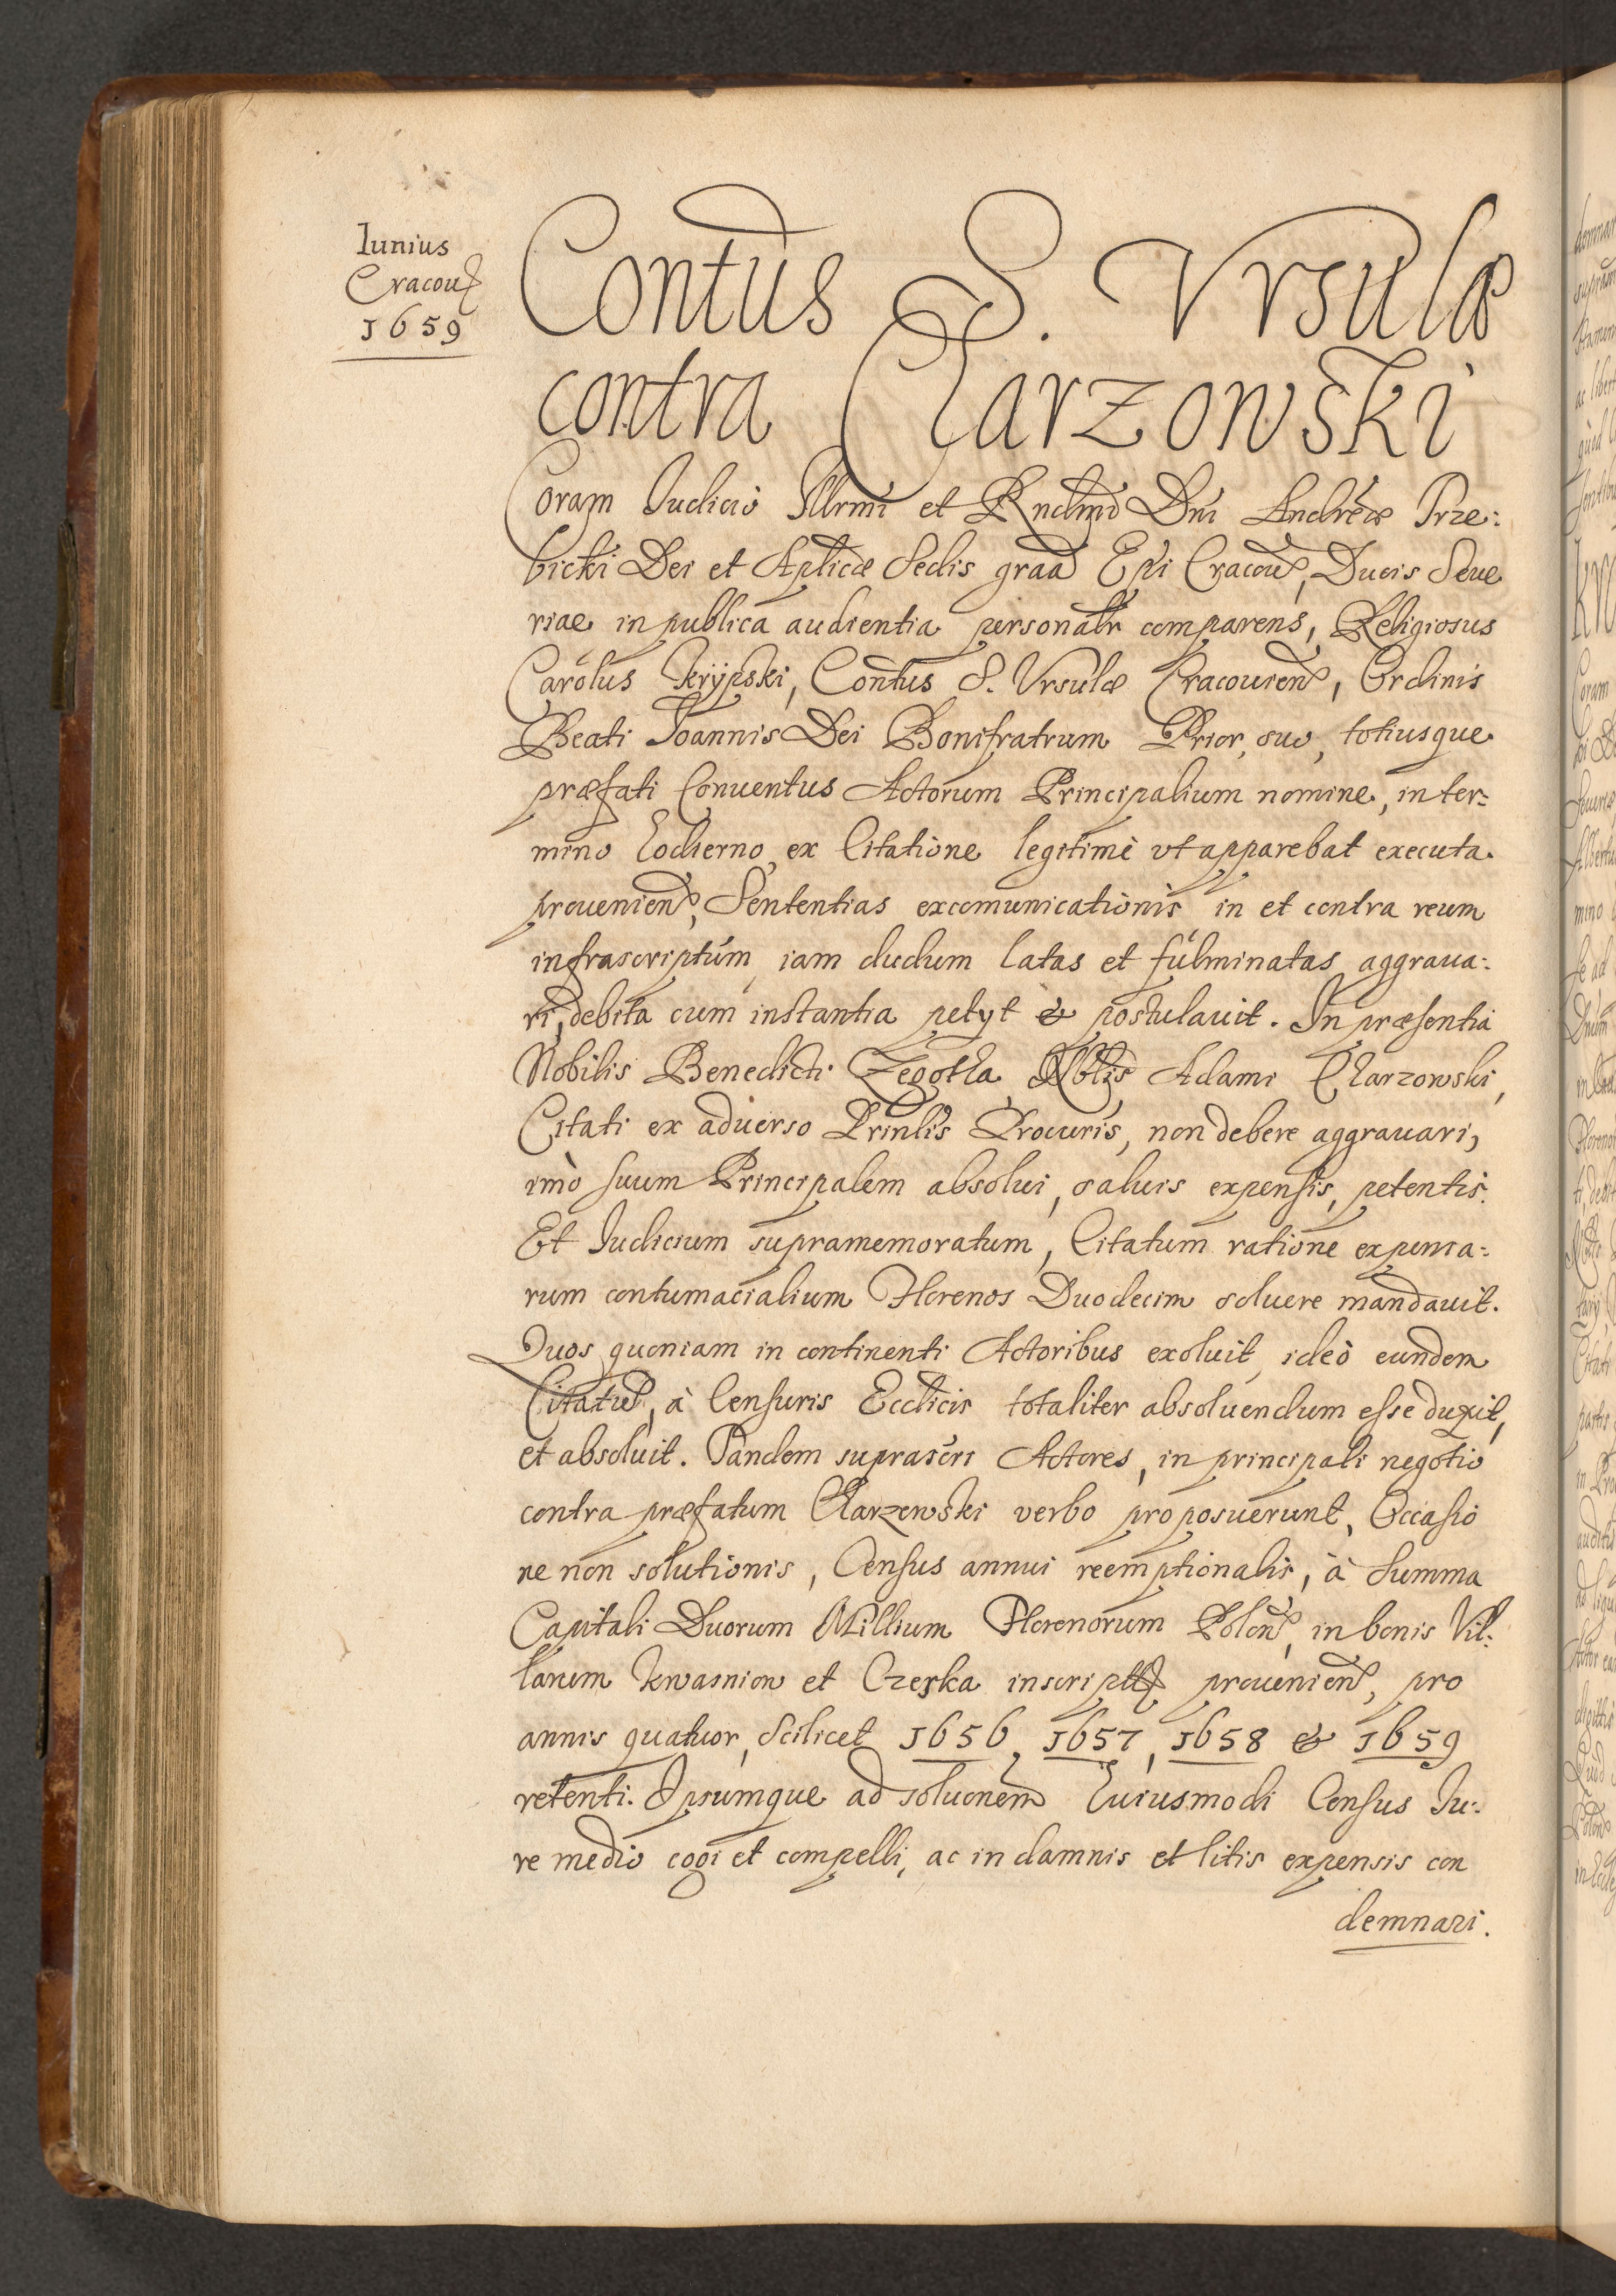 Iunius
Cracou
1659
Contus S. Vrsulæ
contra Charzowski
Coram Iudicio Illrmi et Rndmi Dni Andreæ Trze:
bicki Dei et Aplicæ Sedis graa Epi Cracou, Ducis Seue
riae in publica audientia personalr comparens, Religiosus
Carolus Krÿpski, Contus S. Vrsulæ Cracouien, Ordinis
Beati Ioannis Dei Bonifratrum Prior, suo, totiusque
præfati Conuentus Actorum Principalium nomine, in ter:
mino hodierno, ex Citatione legitimè vt apparebat executa
prouenien, Sententias excomunicationis in et contra reum
infrascriptum, iam dudum latas et fulminatas aggraua:
ri, debita cum instantia petyt & postulauit. In præsentia
Nobilis Benedicti Zegotha Nblis Adami Charzowski,
Citati ex aduerso Prinlis Procuris, non debere aggrauari,
imò suum Principalem absolui, saluis expensis, petentis.
Et Iudicium supramemoratum, Citatum ratione expensa:
rum contumacialium Florenos Duodecim soluere mandauit.
Quos quoniam in continenti Actoribus exoluit, ideò eundem
Citatum, à Censuris Ecclicis totaliter absoluendum esse duxit,
et absoluit. Tandem suprascri Actores, in principali negotio
contra præfatum Charzewski verbo proposuerunt, Occasio
ne non solutionis, Census annui reemptionalis, à Summa
Capitali Duorum Millium Florenorum Polon, in bonis Vil:
larum Kwasniow et Czeska inscript prouenien, pro
annis quatuor, Scilicet 1656, 1657, 1658 & 1659
retenti. Ipsumque ad soluonem huiusmodi Census Iu:
re medio cogi et compelli, ac in damnis et litis expensis con
demnari.